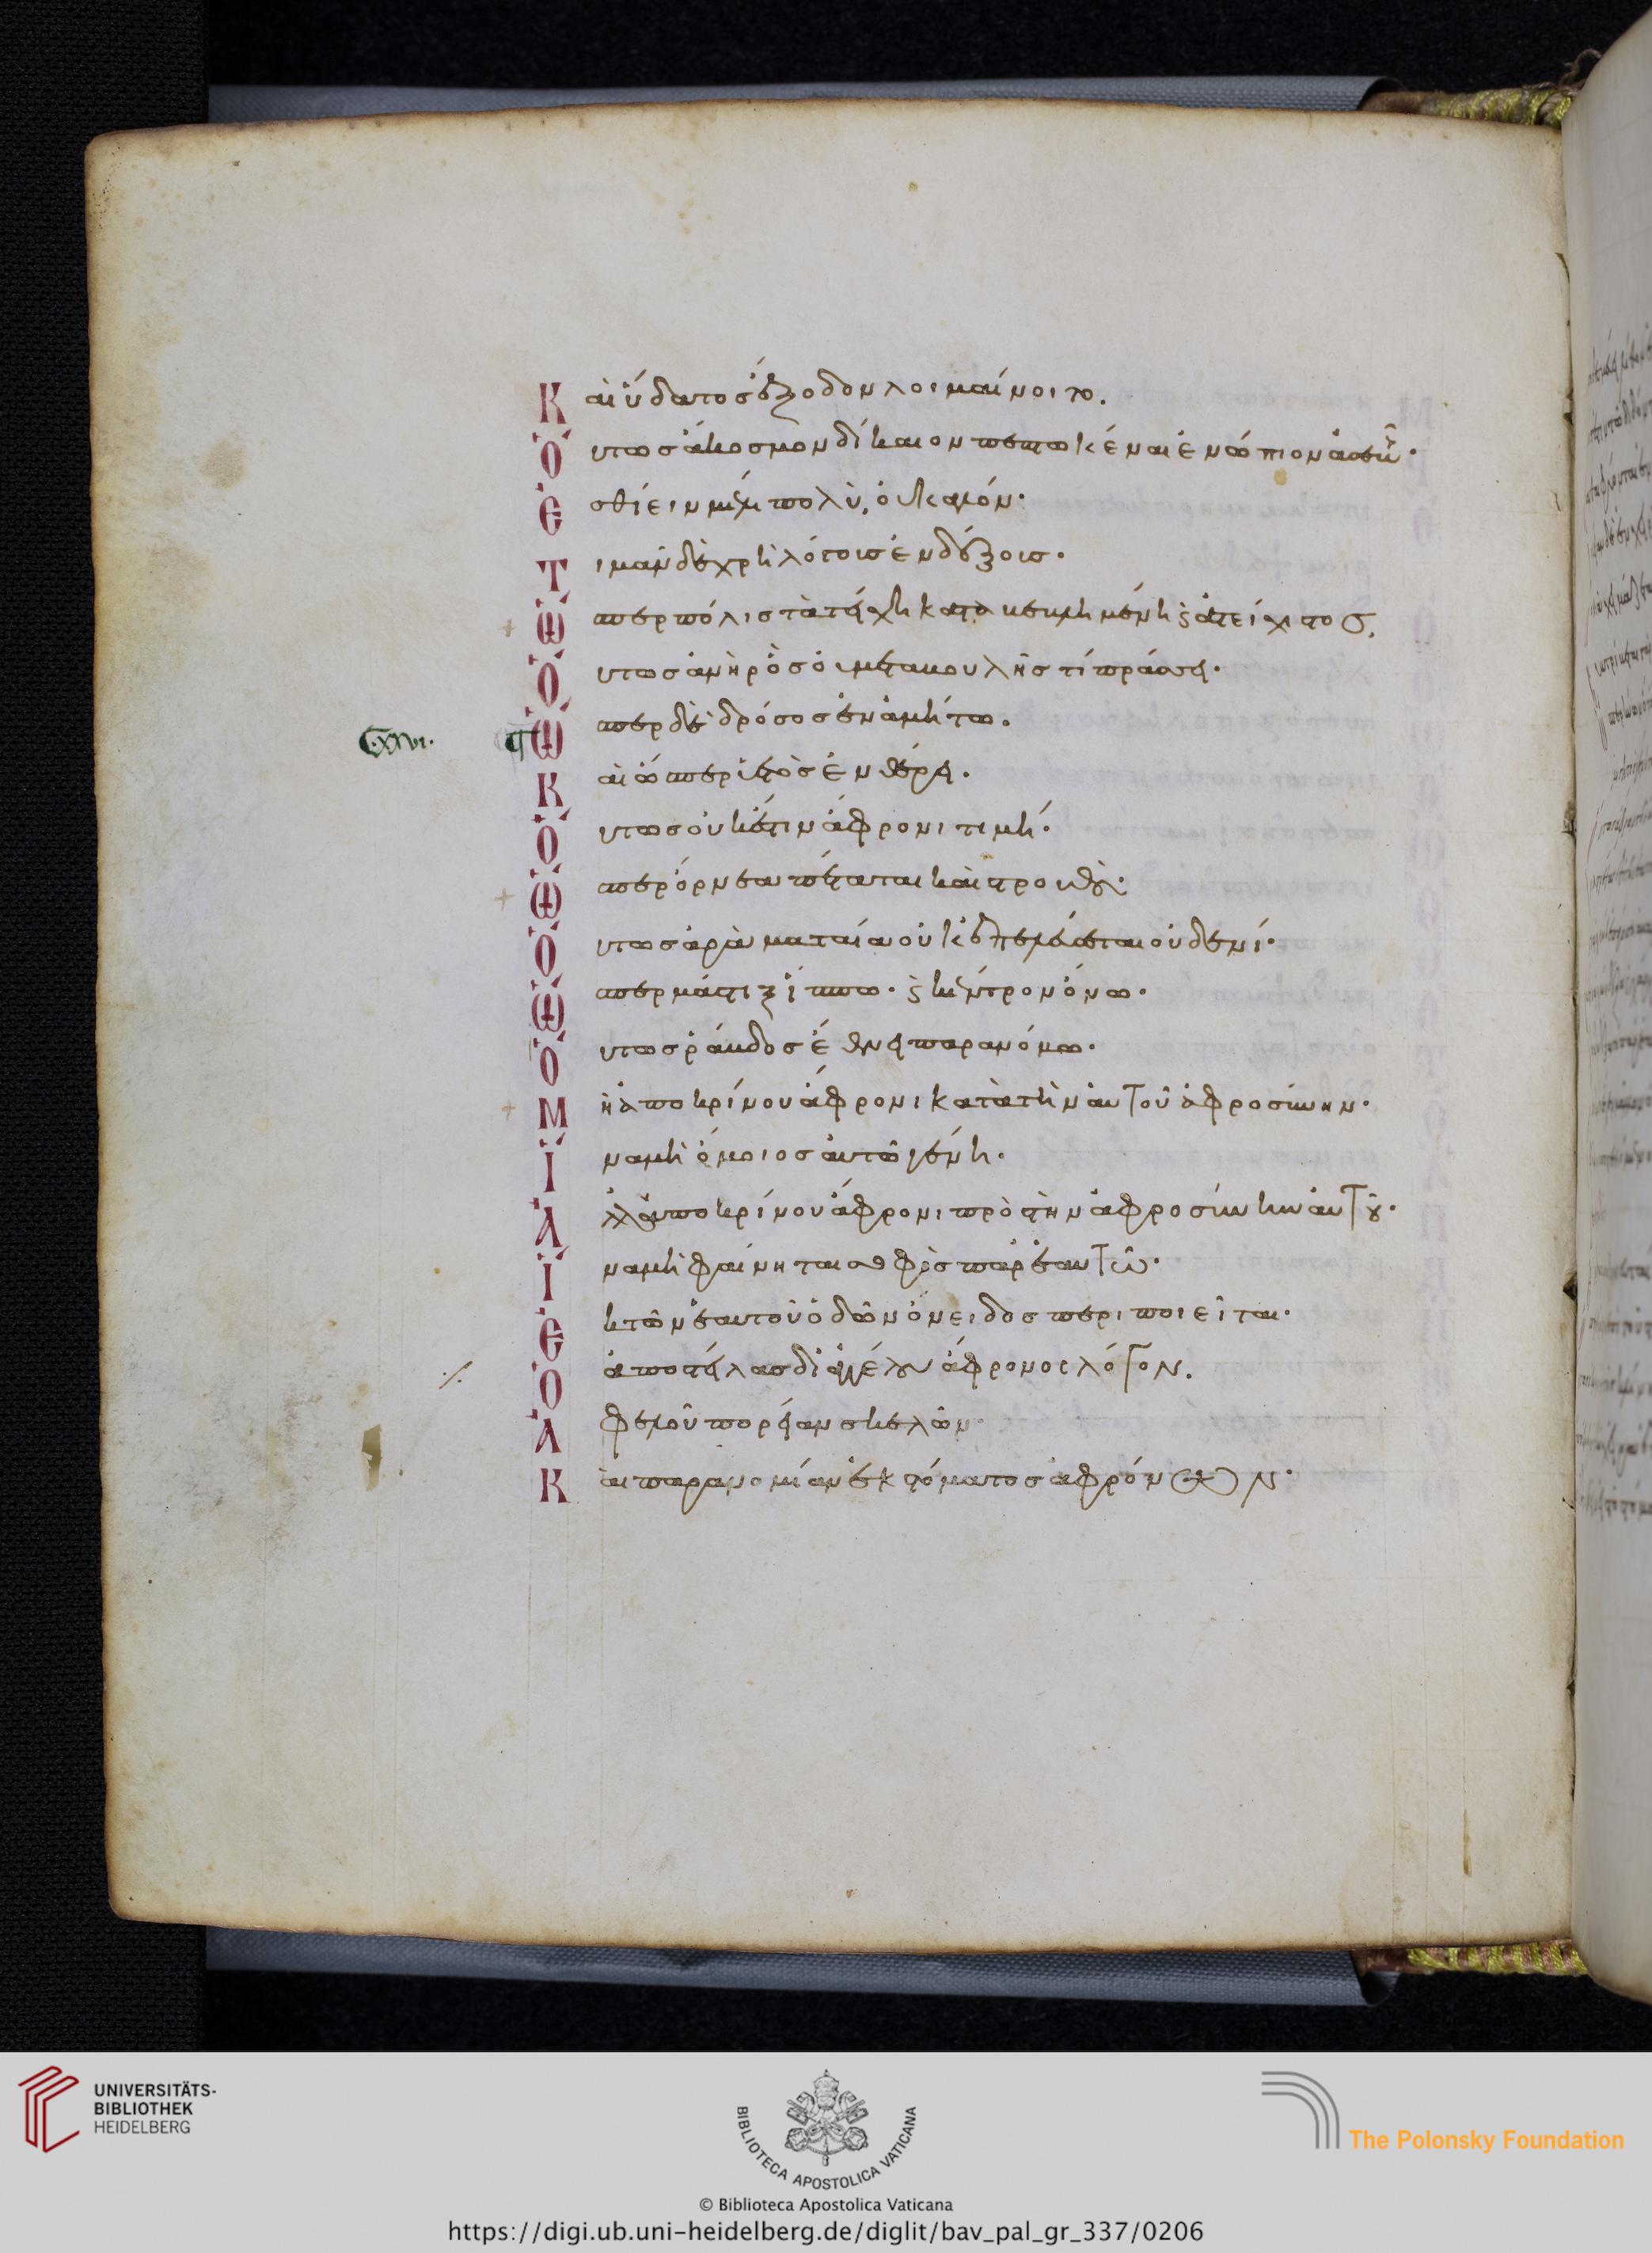 Καὶ ὕδατος ἔξοδον λοιμαίνοιτο.
Οὕτως ἄκοσμον δίκαιον πεπτωκέναι ἐνώπιον ἀσεβοῦς·
Ἐσθίειν μέλι πολὺ, οὐ καλόν·
Τιμᾶν δὲ χρὴ λόγοις ἐνδόξοις·
Ὥσπερ πόλις τὰ τείχη καταβεβλημένη ϗ ἀτείχιστος,
Οὕτως ἀνὴρ ὃς οὐ μετὰ βουλῆς τί πράσσει·
C.xxvi. ¶ Ὥσπερ δὲ δρόσος ἐν ἀμήτω·
Καὶ ὥσπερ ὑετὸς ἐν θέρει·
Οὕτως οὐκ ἔστιν ἄφρονι τιμή·
Ὥσπερ ὄρνεα πέταται καὶ στρουθοὶ·
Οὕτως ἀρὰ ματαία οὐκ ἐπελεύσεται οὐδενί·
Ὥσπερ μάστιξ ἵππω· ϗ κέντρον ὄνω·
Οὕτως ῥάβδος ἔθνει παρανόμω·
Μὴ ἀποκρίνου ἄφρονι κατὰ τὴν αὐτοῦ ἀφροσύνην·
Ἵνα μὴ ὅμοιος αὐτῶ γένη·
Ἀλλὰ ἀποκρίνου ἄφρονι πρὸς τὴν ἀφροσύνην αὐτοῦ·
Ἵνα μὴ φαίνηται σοφὸς παρ ἑαυτῶ·
Ἐκ τῶν ἑαυτοῦ ὁδῶν ὄνειδος περιποιεῖται·
Ὁ ἀποστείλας δι ἀγγέλου ἄφρονος λόγον.
Ἀφελοῦ πορείαν σκελῶν·
Καὶ παρανομίαν ἐκ στόματος ἀφρόνων·
UNIVERSITÄTS-
BIBLIOTHEK
HEIDELBERG
BIBLIOTECA APOSTOLICA VATICANA
The Polonsky Foundation
© Biblioteca Apostolica Vaticana
https://digi.ub.uni-heidelberg.de/diglit/bav_pal_gr_337/0206